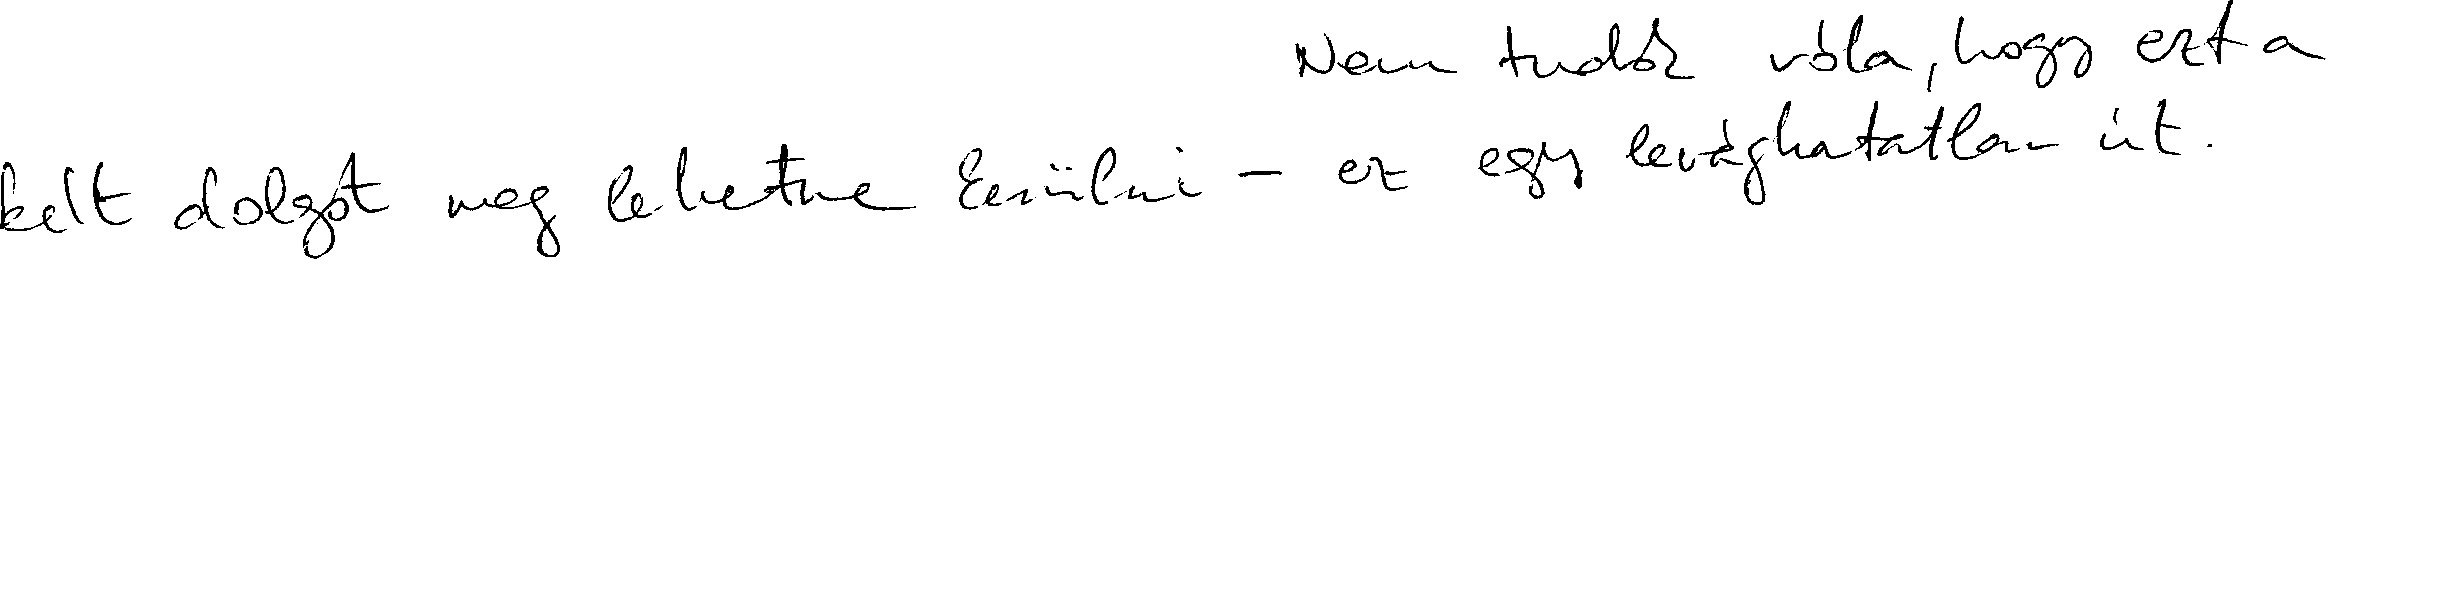 Nem tudok róla, hogy ezt a
két dolgot meg lehetne kerülni – ez egy levághatatlan út.